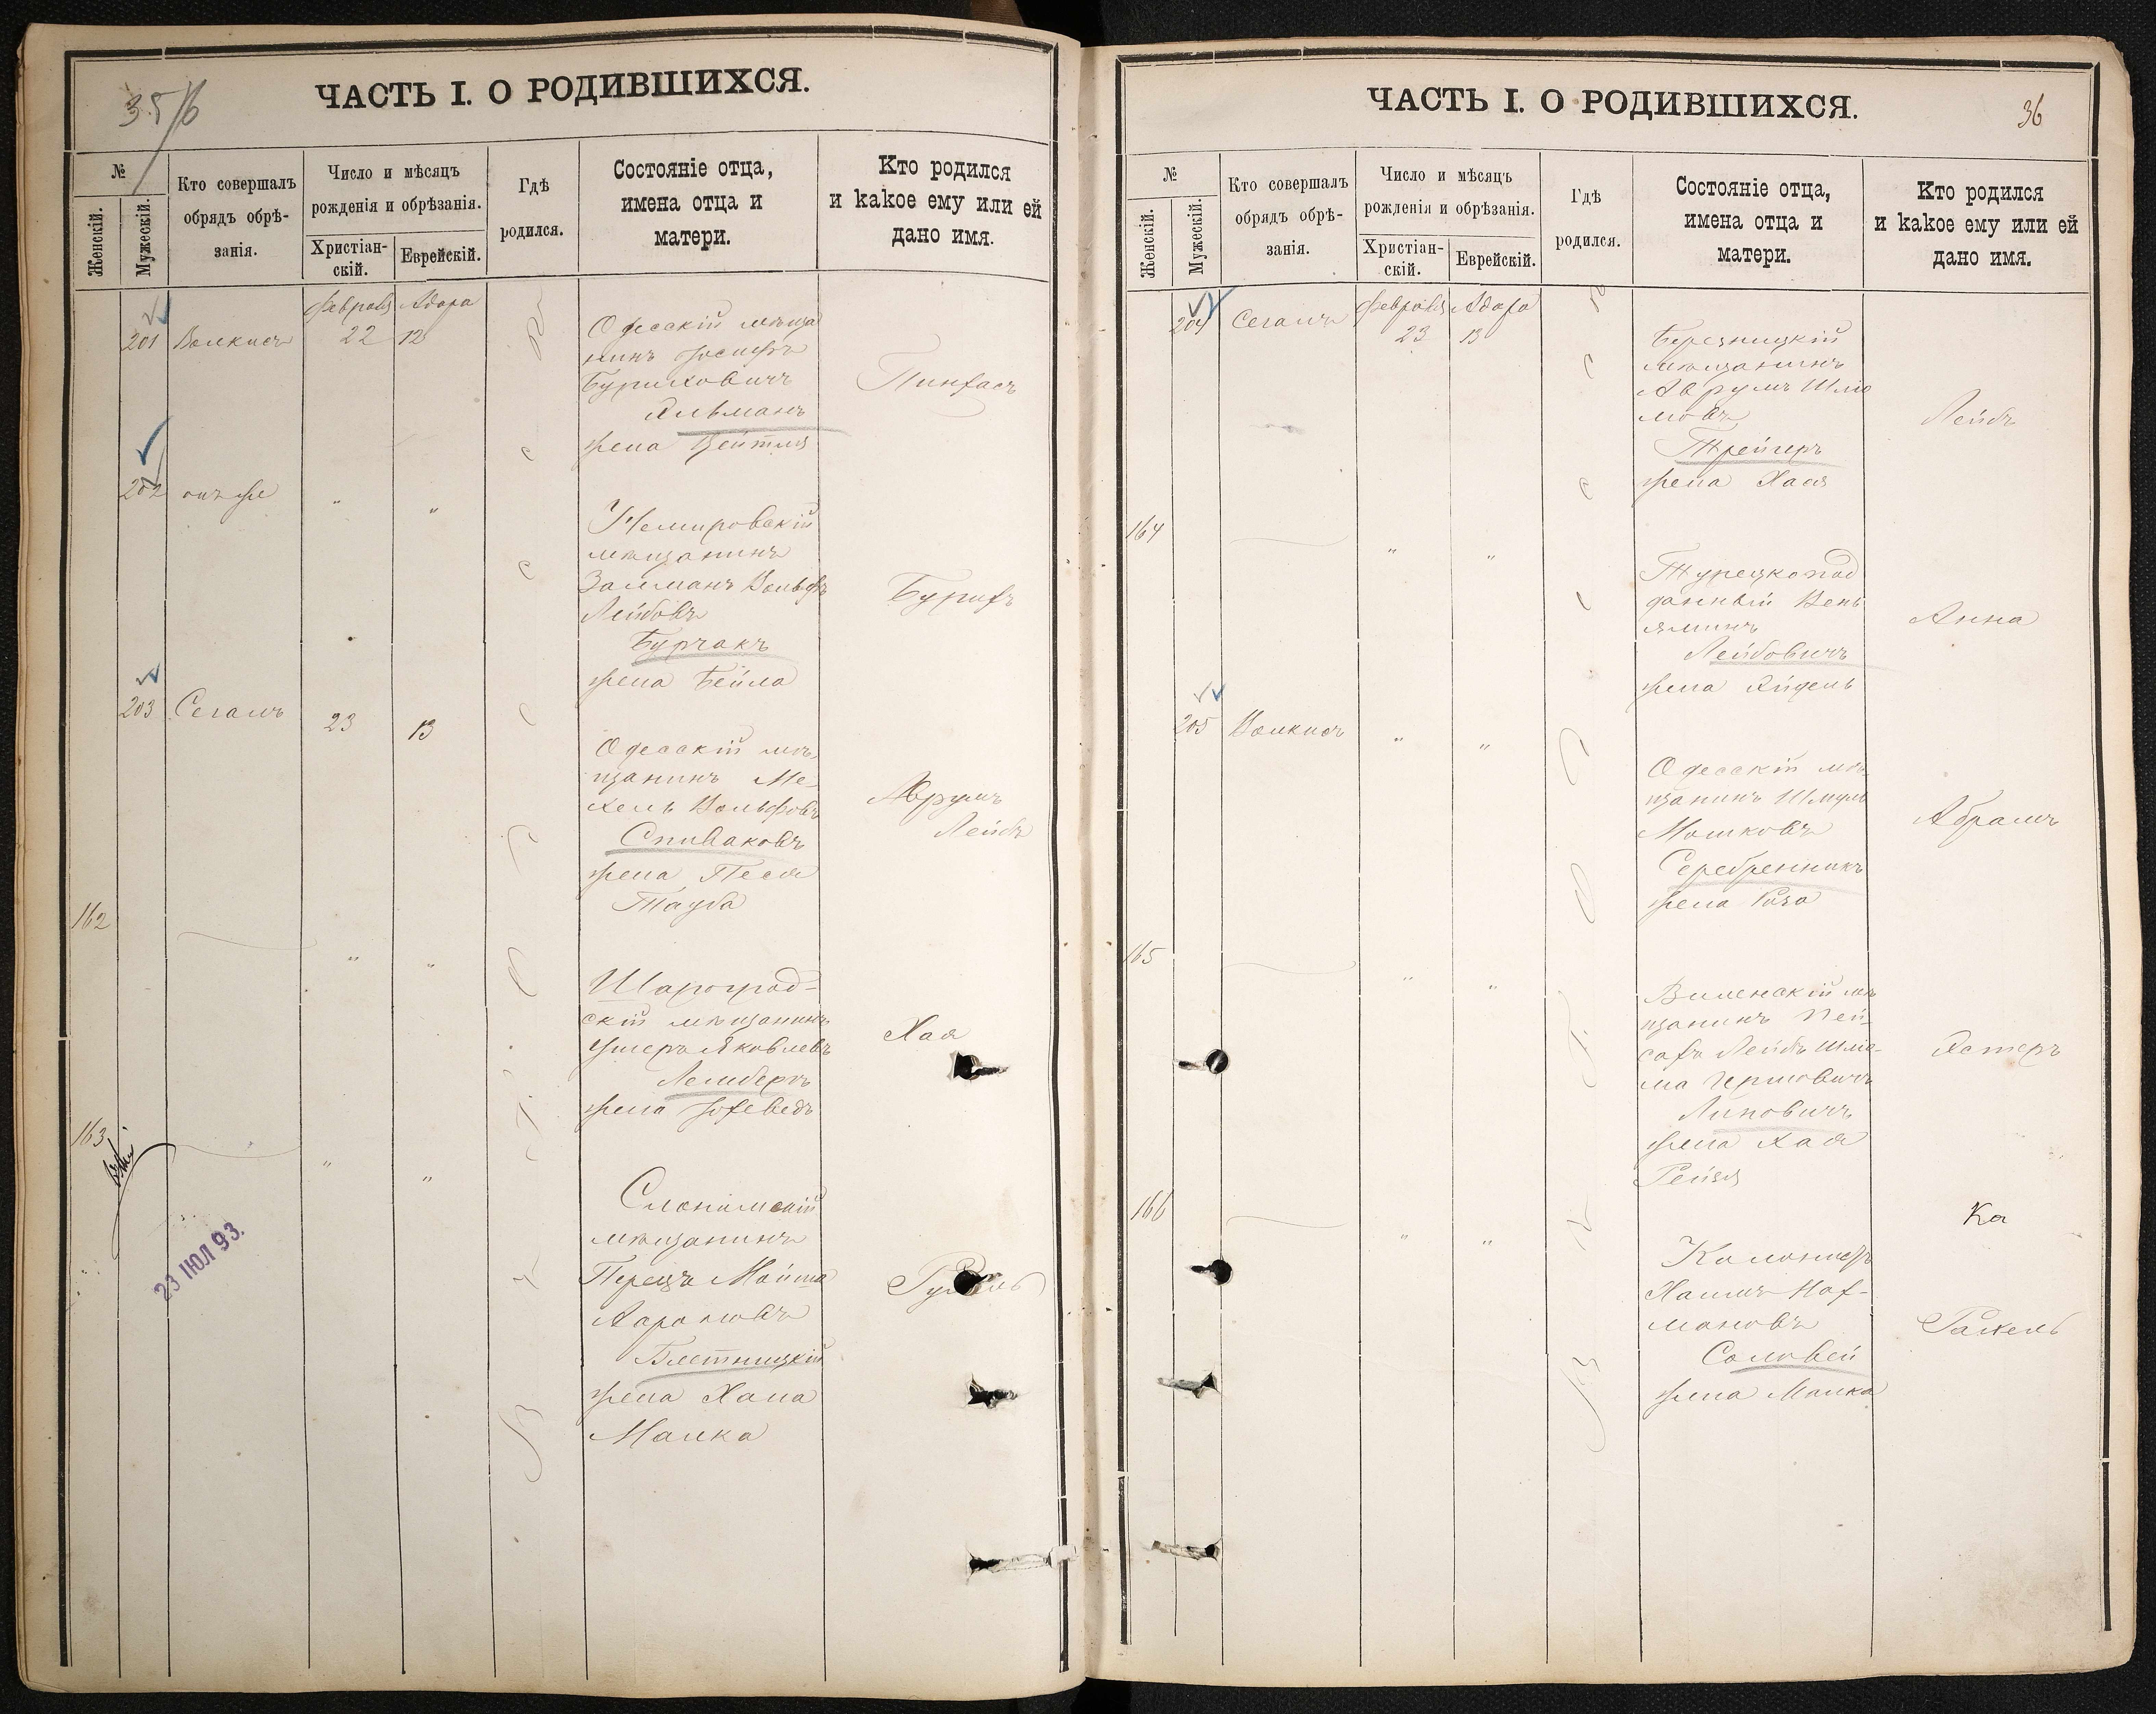 35/6
ЧАСТЬ I. О РОДИВШИХСЯ.
№
Женскій.
Мужескій.
Кто совершалъ
обрядъ обрѣ-
занія.
Число и мѣсяцъ
рожденія и обрѣзанія.
Христіан-
скій.
Еврейскій.
Гдѣ
родился.
Состояніе отца,
имена отца и
матери.
Кто родился
и какое ему или ей
дано имя.
201
Волкисъ
Февраля
22
Адара
12
Одесскій мѣща
нинъ Іосифъ
Бурихович
Альманъ
жена Цейтля
Пинхасъ
202
онъ же
"
"
Немировскій
мѣщанинъ
Залманъ Вольфъ
Лейбовъ
Бурчакъ
жена Бейла
Бурихъ
203
Сегалъ
23
13
Одесскій мѣ
щанинъ Ме
хель Вольфовъ
Спиваковъ
жена Песя
Тауба
Аврумъ
Лейбъ
162
"
"
Шарогрод-
скій мѣщанинъ
Ушеръ Яковлевъ
Лемберъ
жена Іохеведъ
Хая
163
"
"
Слонимскій
мѣщанинъ
Перецъ Мойше
Аароновъ
Блетницкій
жена Хана
Малка
23 ІЮЛ 93.
В О Д Е С С Ѣ
ЧАСТЬ I. О РОДИВШИХСЯ.
36
№
Женскій.
Мужескій.
Кто совершалъ
обрядъ обрѣ-
занія.
Число и мѣсяцъ
рожденія и обрѣзанія.
Христіан-
скій.
Еврейскій.
Гдѣ
родился.
Состояніе отца,
имена отца и
матери.
Кто родился
и какое ему или ей
дано имя.
204
Сегалъ
Февраля
23
Адара
13
Березницкій
мѣщанинъ
Аврумъ Шлио
мовъ
Трейгеръ
жена Хая
Лейбъ
164
"
"
Турецкопод
данный Вень
яминъ
Лейбовичъ
жена Айдель
Анна
205
Волкисъ
"
"
Одесскій мѣ-
щанинъ Шмуль
Мошковъ
Серебренникъ
жена Роза
Абрамъ
165
"
"
Виленскій мѣ
щанинъ Пей-
сахъ Лейбъ Шлио-
ма Гершовичъ
Липовичъ
жена Хая
Рейзя
Эстеръ
166
"
"
Колонистъ
Хаимъ Нах-
мановъ
Соловей
жена Малка
Ка
Рахель